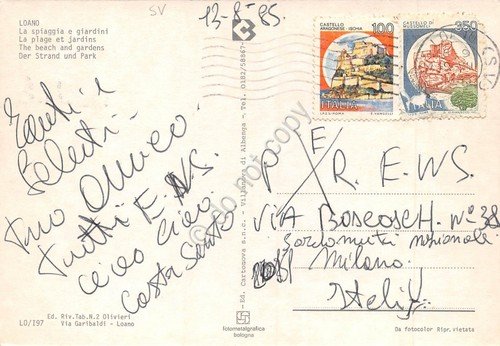 SV
13-8-85.
LOANO
La spiaggia e giardini
La plage et jardins
The beach and gardens
Der Strand und Park
CASTELLO
ARAGONESE - ISCHIA
100
ITALIA
I.P.Z.S. ROMA
E. VANGELLI
CASTELLO DI
350
ITALIA
Tanti
Saluti
Tuo Amico.
Tutti E.N.S.
Ciao Ciao.
Costa Santo
PER. E.W.S.
VIA BOSCOSCH. N° 38
Sordomuti nazionale
Milano.
Italy.
Ed. Cartonova s.n.c. - Villanova di Albenga - Tel. 0182/58867
do not copy
Ed. Riv.Tab.N.2 Olivieri
LO/197 Via Garibaldi - Loano
fotometalgrafica
bologna
Da fotocolor Riprod. vietata